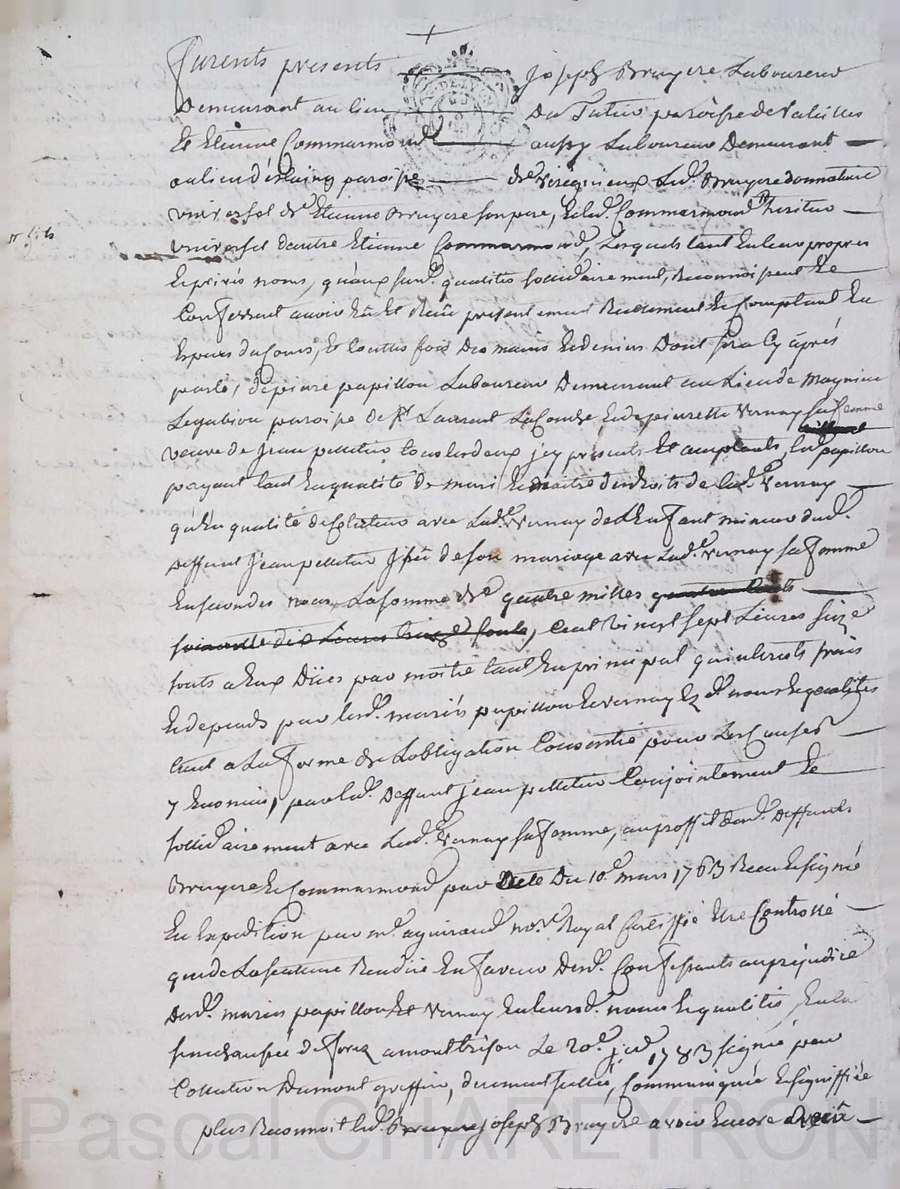 furents presents Joseph Bruyere Laboureur
Demeurant au lieu Du paroisse de Valeilles
Et Etienne Commarmond aussy Laboureur Demeurant
au lieu d'Etaing paroisse de Virigneux Led. Bruyere donnataire
universel de Etienne Bruyere son pere, Et led. Commarmond heritier
fils
universel d'autre Etienne Commarmond, Lesquels tant En leur propres
Et privés noms, qu'aux susd. qualités sollidairement, Reconnoissent Et
Confessent avoir Eû Et Reçû presentement Reellement Et Comptant En
Especes du Cours, Et toutes fois Des mains Et deniers Dont sera Cy après
parlé, de pierre papillon Laboureur Demeurant au Lieu de
paroisse de St Laurent Et de pierrette Vernay sa femme
veuve de Jean pelletier tous les deux jcy presents Et acceptants, led. papillon
payant tant En qualité de mari Et maitre des droits de lad. Vernay
qu'En qualité de avec Lad. Vernay de L'Enfant mineur dud.
Deffunt Jean pelletier Issû de son mariage avec Lad. Vernay sa femme
En secondes noces La somme de quatre milles quatre Cents
soixante dix Livres sols, Cent vingt sept Livres seize
sols a Eux Dües par moitié tant En principal qu'interets frais
Et depends par lesd. mariés papillon Et Vernay Ez d. noms Et qualités
tant a La forme de L'obligation Consentie pour Les Causes
y Enoncés, par led. Deffunt Jean pelletier Conjointement Et
sollidairement avec Lad. Vernay sa femme, au proffit desd. Deffunts
Bruyere Et Commarmond par acte Du 10e. mars 1763 Reçu Et signé
En Expedition par me. aguiraud nore. Royal Certiffié Etre Controllé
que de La sentence Rendüe En faveur desd. Confessants au préjudice
desd. mariés papillon Et Vernay En leursd. noms Et qualités En la
senechaussée de forez a montbrison Le 20e. 1783 signée par
Collation Dumont greffier, duement scellée, Communiquée Et signiffiée
plus Reconnoit led. Bruyere joseph Bruyere avoir Encore Reçû
Pascal CHAREYRON